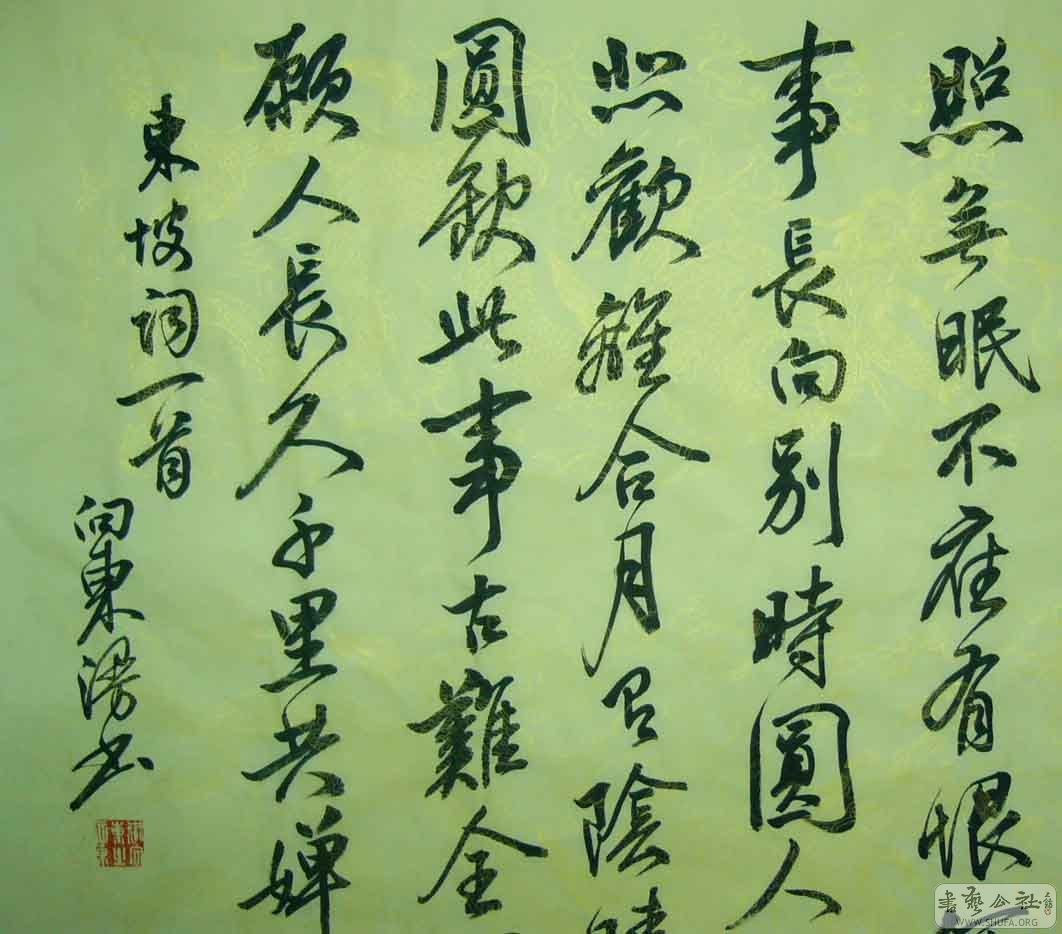 照無眠不應有恨
事長向別時圓人
悲歡離合月有陰晴
圓缺此事古難全
願人長久千里共嬋
東坡詞一首
向東書
書藝公社
WWW.SHUFA.ORG